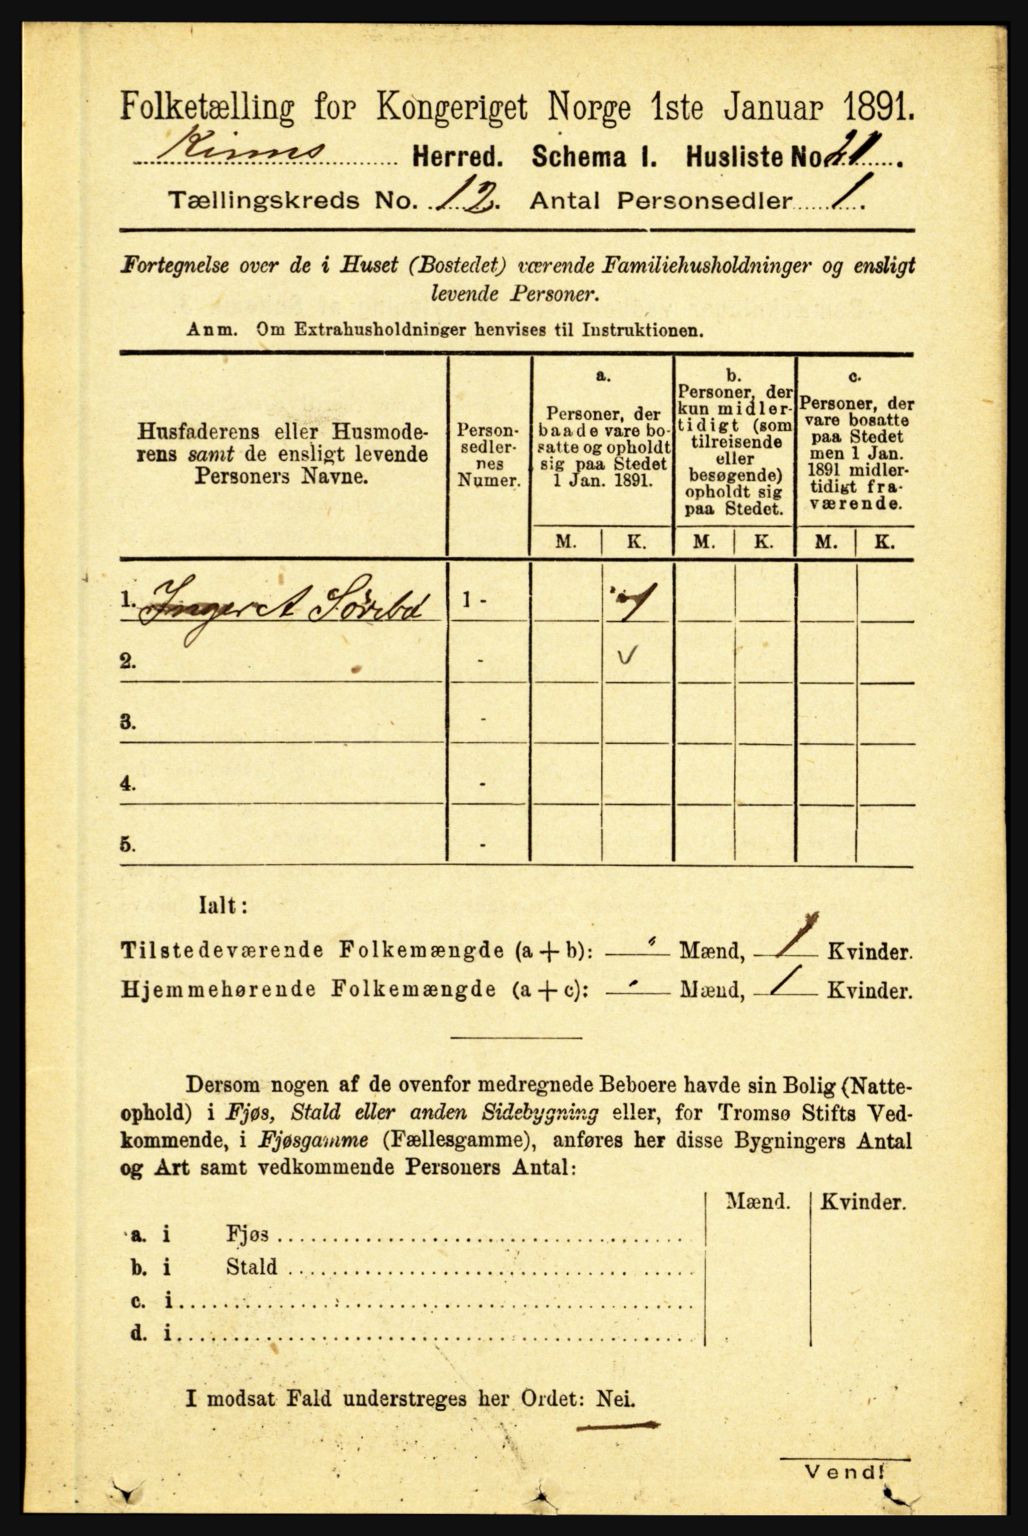 Folketælling for Kongeriget Norge 1ste Januar 1891.
Kinns Herred. Schema I. Husliste No. 21.
Tællingskreds No. 12. Antal Personsedler 1.
Fortegnelse over de i Huset (Bostedet) værende Familiehusholdninger og ensligt
levende Personer.
Anm. Om Extrahusholdninger henvises til Instruktionen.
Husfaderens eller Husmode-
rens samt de ensligt levende
Personers Navne.
Person-
sedler-
nes
Numer.
a.
Personer, der
baade vare bo-
satte og opholdt
sig paa Stedet
1 Jan. 1891.
b.
Personer, der
kun midler-
tidigt (som
tilreisende
eller
besøgende)
opholdt sig
paa Stedet.
c.
Personer, der
vare bosatte
paa Stedet
men 1 Jan.
1891 midler-
tidigt fra-
værende.
M. K. M. K. M. K.
1. Inger A Sørebø 1 - 1
2. - v
3. -
4. -
5. -
Ialt:
Tilstedeværende Folkemængde (a+b): Mænd, 1 Kvinder.
Hjemmehørende Folkemængde (a+c): Mænd, 1 Kvinder.
Dersom nogen af de ovenfor medregnede Beboere havde sin Bolig (Natte-
ophold) i Fjøs, Stald eller anden Sidebygning eller, for Tromsø Stifts Ved-
kommende, i Fjøsgamme (Fællesgamme), anføres her disse Bygningers Antal
og Art samt vedkommende Personers Antal:
Mænd. Kvinder.
a. i Fjøs
b. i Stald
c. i
d. i
I modsat Fald understreges her Ordet: Nei.
Vend!